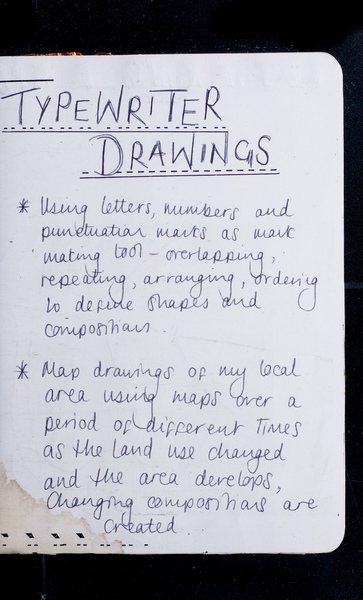 TYPEWRITER
DRAWINGS
* Using letters, numbers and
punctuation marks as mark
making tool - overlapping,
repeating, arranging, ordering
to define shapes and
compositions.
* Map drawings of my local
area using maps over a
period of different times
as the land use changed
and the area develops,
Changing compositions are
created.